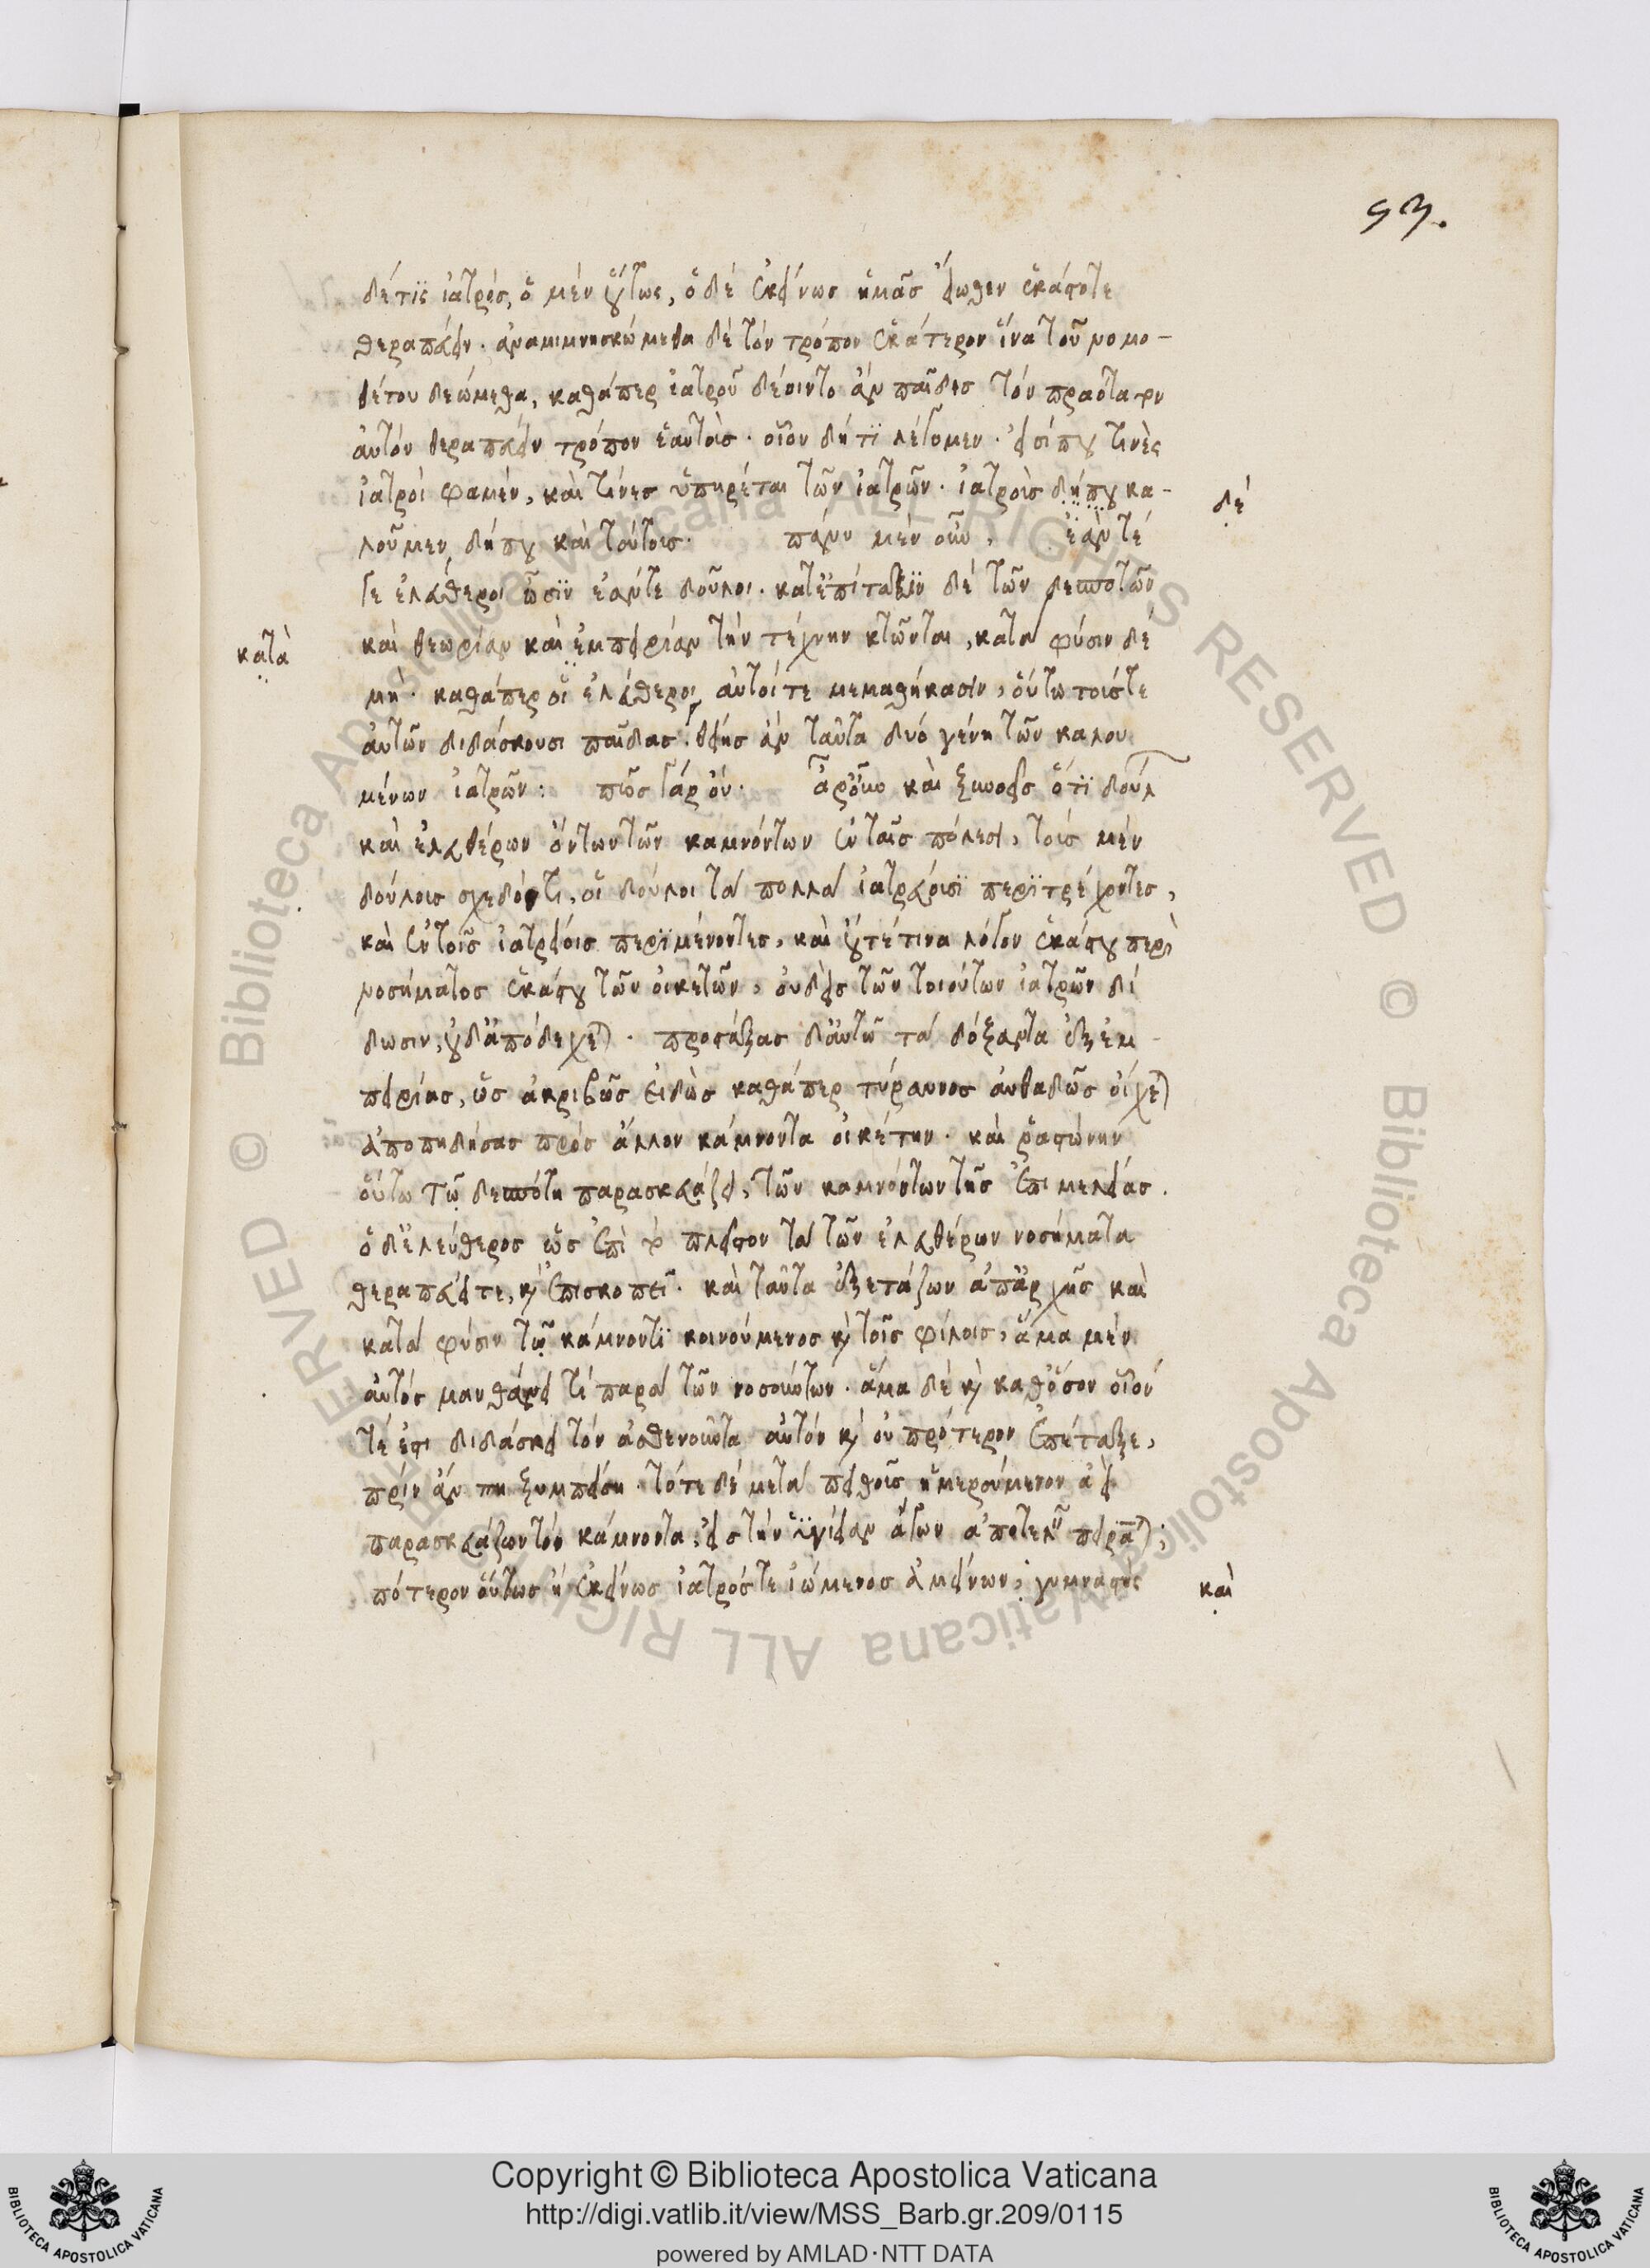 53.
δέ τις ἰατρός, ὁ μὲν οὕτως, ὁ δὲ ἐκείνως ἡμᾶς εἴωθεν ἑκάστοτε
θεραπεύειν. ἀναμιμνησκώμεθα δὲ τὸν τρόπον ἑκάτερον ἵνα τοῦ νομο-
θέτου δεώμεθα, καθάπερ ἰατροῦ δέοιντο ἂν παῖδες τὸν πραότατον
αὐτὸν θεραπεύειν τρόπον ἑαυτὰς. οἷον δή τι λέγομεν. εἰσί που τινὲς
ἰατροί φαμέν, καὶ τινες ὑπηρέται τῶν ἰατρῶν. ἰατροὺς δήπου κα-
δέ
λοῦμεν δήπου καὶ τούτοις. πάνυ μὲν οὖν. ἐάν τέ
γε ἐλεύθεροι ὦσιν ἐάντε δοῦλοι. κατ' ἐπίταξιν δὲ τῶν δεσποτῶν
κατὰ
καὶ θεωρίαν καὶ ἐμπειρίαν τὴν τέχνην κτῶνται, κατὰ φύσιν δὲ
μή. καθάπερ οἱ ἐλεύθεροι αὐτοί τε μεμαθήκασιν, οὕτω τούς τε
αὐτῶν διδάσκουσι παῖδας. θείης ἂν ταῦτα δυό γένη τῶν καλου
μένων ἰατρῶν: πῶς γάρ οὔ. ἆρ' οὖν καὶ ξυννοεῖς ὅτι δούλ
καὶ ἐλευθέρων ὄντων τῶν καμνόντων ἐν ταῖς πόλεσι, τοὺς μὲν
δούλοις σχεδόν τι, οἱ δοῦλοι τὰ πολλὰ ἰατρεύουσι περιτρέχοντες,
καὶ ἐν τοῖς ἰατρείοις περιμένοντες, καὶ οὔτέ τινα λόγον ἑκάστου περὶ
νοσήματος ἑκάστου τῶν οἰκετῶν, οὐδεὶς τῶν τοιούτων ἰατρῶν δί
δωσιν, οὐδ' ἀποδέχεται. προστάξας δ' αὐτῷ τὰ δόξαντα ἐξ ἐμ-
πειρίας, ὡς ἀκριβῶς εἰδὼς καθάπερ τύραννος αὐθαδῶς οἴχεται
ἀποπηδήσας πρὸς ἄλλον κάμνοντα οἰκέτην. καὶ ῥᾳστώνην
οὕτω τῷ δεσπότῃ παρασκευάζει, τῶν καμνόντων τῆς ἐπιμελείας.
ὁ δ' ἐλεύθερος ὡς ἐπὶ τὸ πλεῖστον τὰ τῶν ἐλευθέρων νοσήματα
θεραπεύει τε, καὶ ἐπισκοπεῖ. καὶ ταῦτα ἐξετάζων ἀπ' ἀρχῆς καὶ
κατὰ φύσιν τῷ κάμνοντι κοινούμενος καὶ τοῖς φίλοις, ἅμα μὲν
αὐτός μανθάνει τί παρὰ τῶν νοσούντων. ἅμα δὲ καὶ καθ' ὅσον οἷόν
τέ ἐστι διδάσκει τὸν ἀσθενοῦντα αὐτόν καὶ οὐ πρότερον ἐπέταξε,
πρὶν ἄν πη ξυμπείσῃ. τότε δὲ μετὰ πειθοῦς ἡμερούμενον ἀεὶ
παρασκευάζων τὸν κάμνοντα, εἰς τὴν ὑγίειαν ἄγων ἀποτελεῖν πειρᾶται;
πότερον οὕτως ἢ ἐκείνως ἰατρός τε ἰώμενος ἀμείνων, γυμναστὴς
καὶ
Copyright © Biblioteca Apostolica Vaticana
http://digi.vatlib.it/view/MSS_Barb.gr.209/0115
powered by AMLAD·NTT DATA